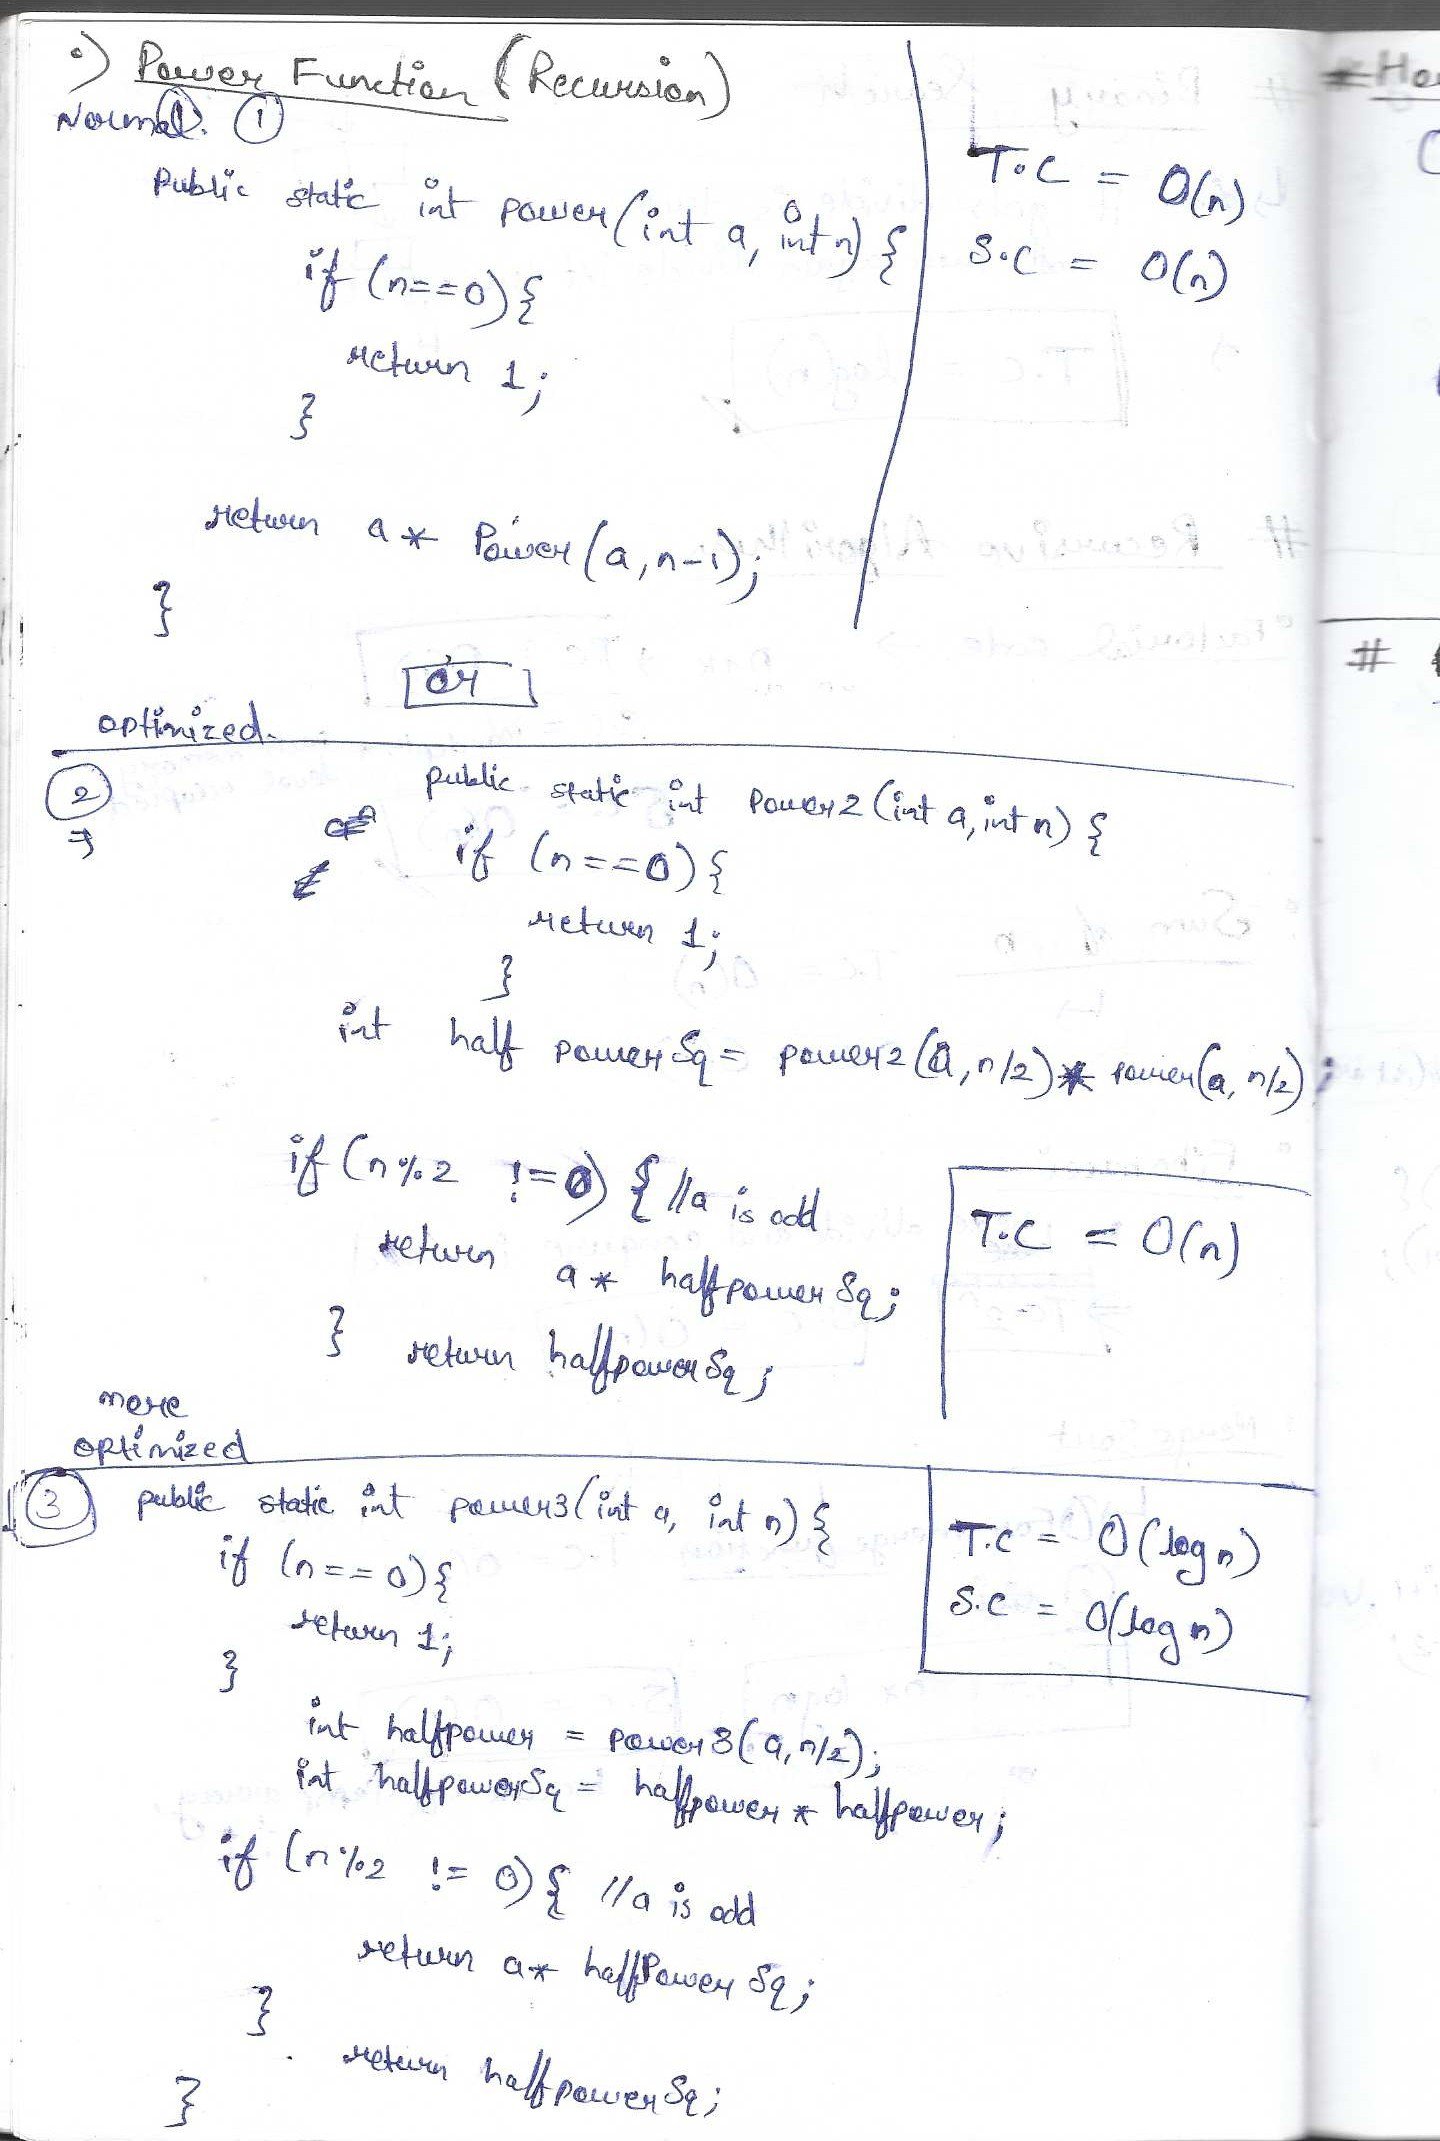 •) Power Function (Recursion)
Normal. ①
Public static int power(int a, int n) {
if (n==0){
return 1;
}
return a * Power(a, n-1);
}
T.C = O(n)
S.C = O(n)
or
optimized.
②
→
public static int Power2(int a, int n) {
if (n==0){
return 1;
}
int half powerSq = power2(a, n/2) * power(a, n/2);
if (n%2 !=0) { //a is odd
return a* halfpowerSq;
} return halfpowerSq;
T.C = O(n)
more
optimized
③ public static int power3(int a, int n) {
if (n==0){
return 1;
}
T.C = O(log n)
S.C = O(log n)
int halfpower = power3(a, n/2);
int halfpowerSq = halfpower * halfpower;
if (n%2 != 0){ //a is odd
return a* halfPowerSq;
}
return halfpowerSq;
}
#